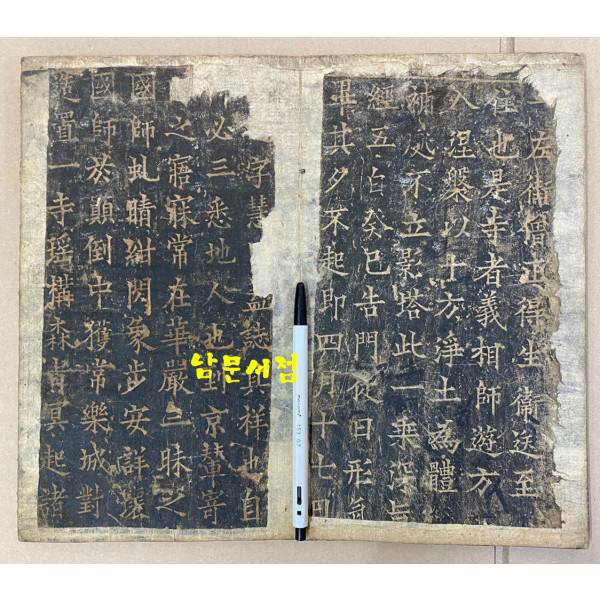 左衛僧正得生衛送至
住也是寺者義相師遊方
入涅槃以十方淨土為體
補處不立影塔此一乘深旨
經五伯癸巳告門徒曰形氣
畢其夕不起即四月十七日
字慧 誌其祥也自
必三悉地人也到京輦寄
之寤寐常在華嚴三昧之
國師虬晴紺閃象步安詳壞
國師於顛倒中獲常樂城對
置一寺瑤構森 具起諸
남문서점